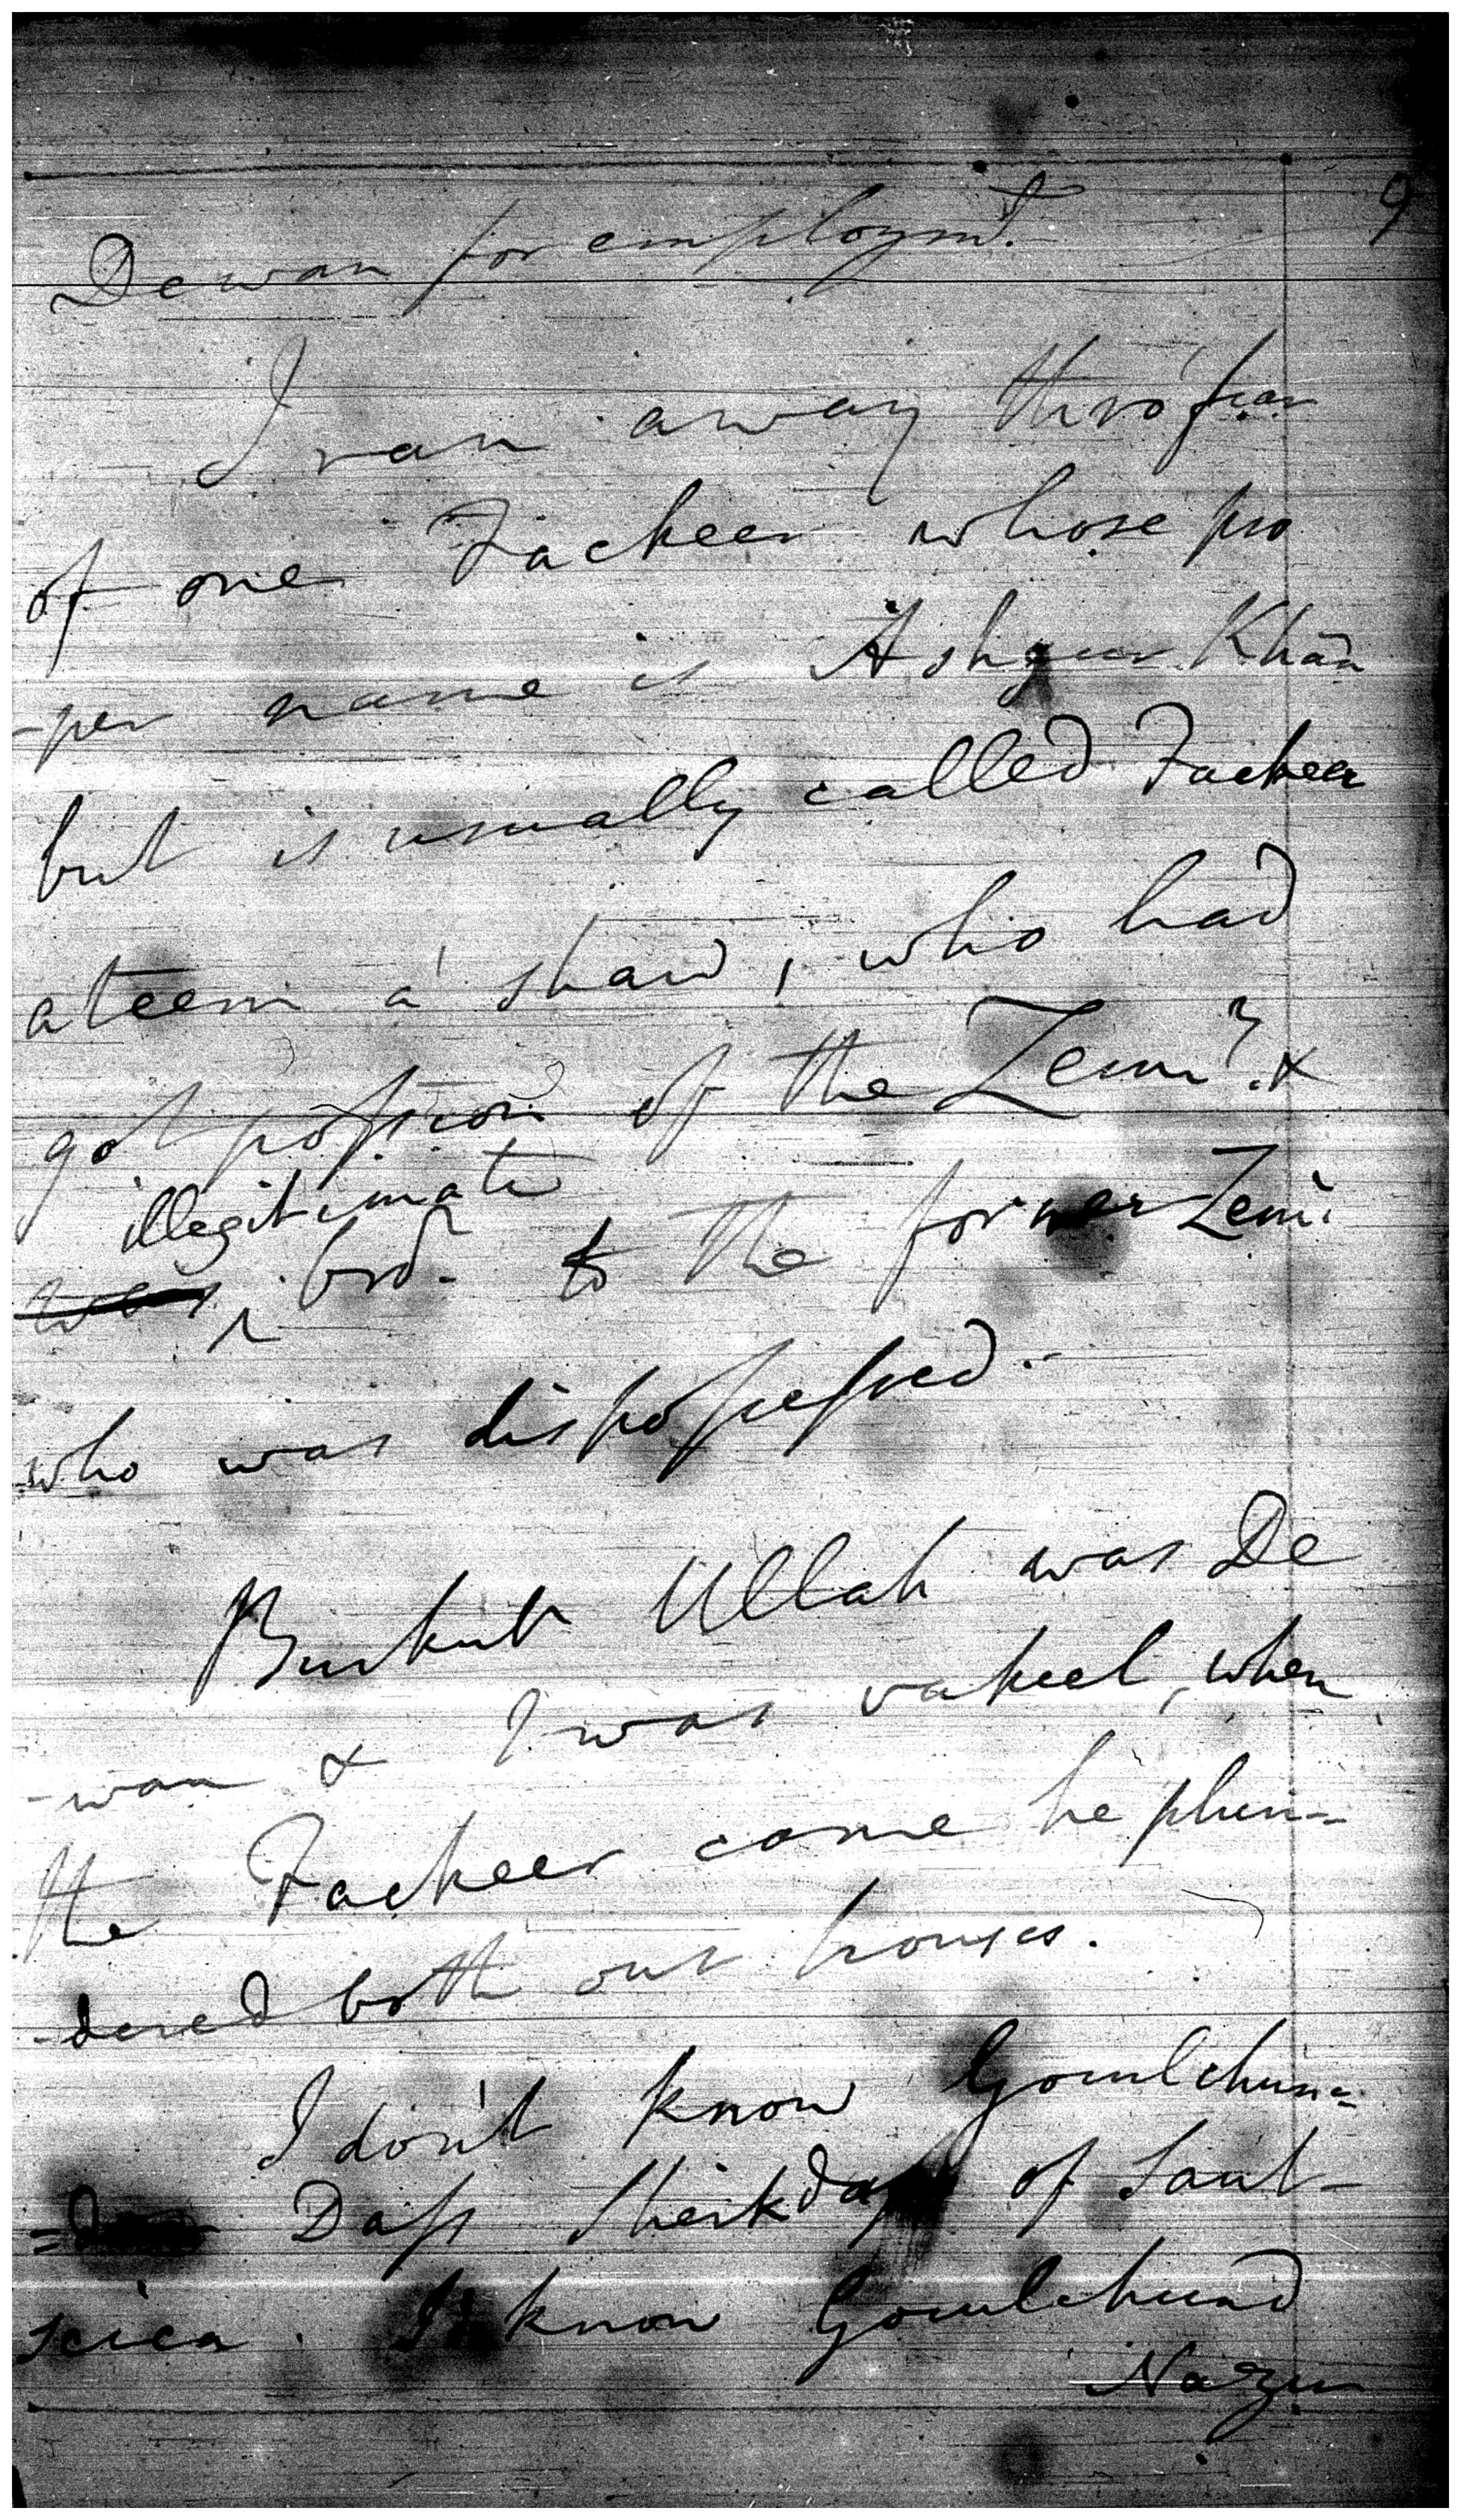 9
Dewan for employmt.
I ran away thro' fear
of one Fackeer whose pro
-per name is Ashgur Khān
but is usually called Fackeer
ateem a' shaw, who had
got possion of the Zemy. &
illegitimate
was ^ bror. to the former Zemr.
who was dispossessed.
Burkut Ullah was De
-wan & I was vakeel, when
the Fackeer came he plun-
-dered both our houses.
I don't know Goculchun=
= Dass Sheikdar of Saut-
seica. I know Goculchund
Nazir